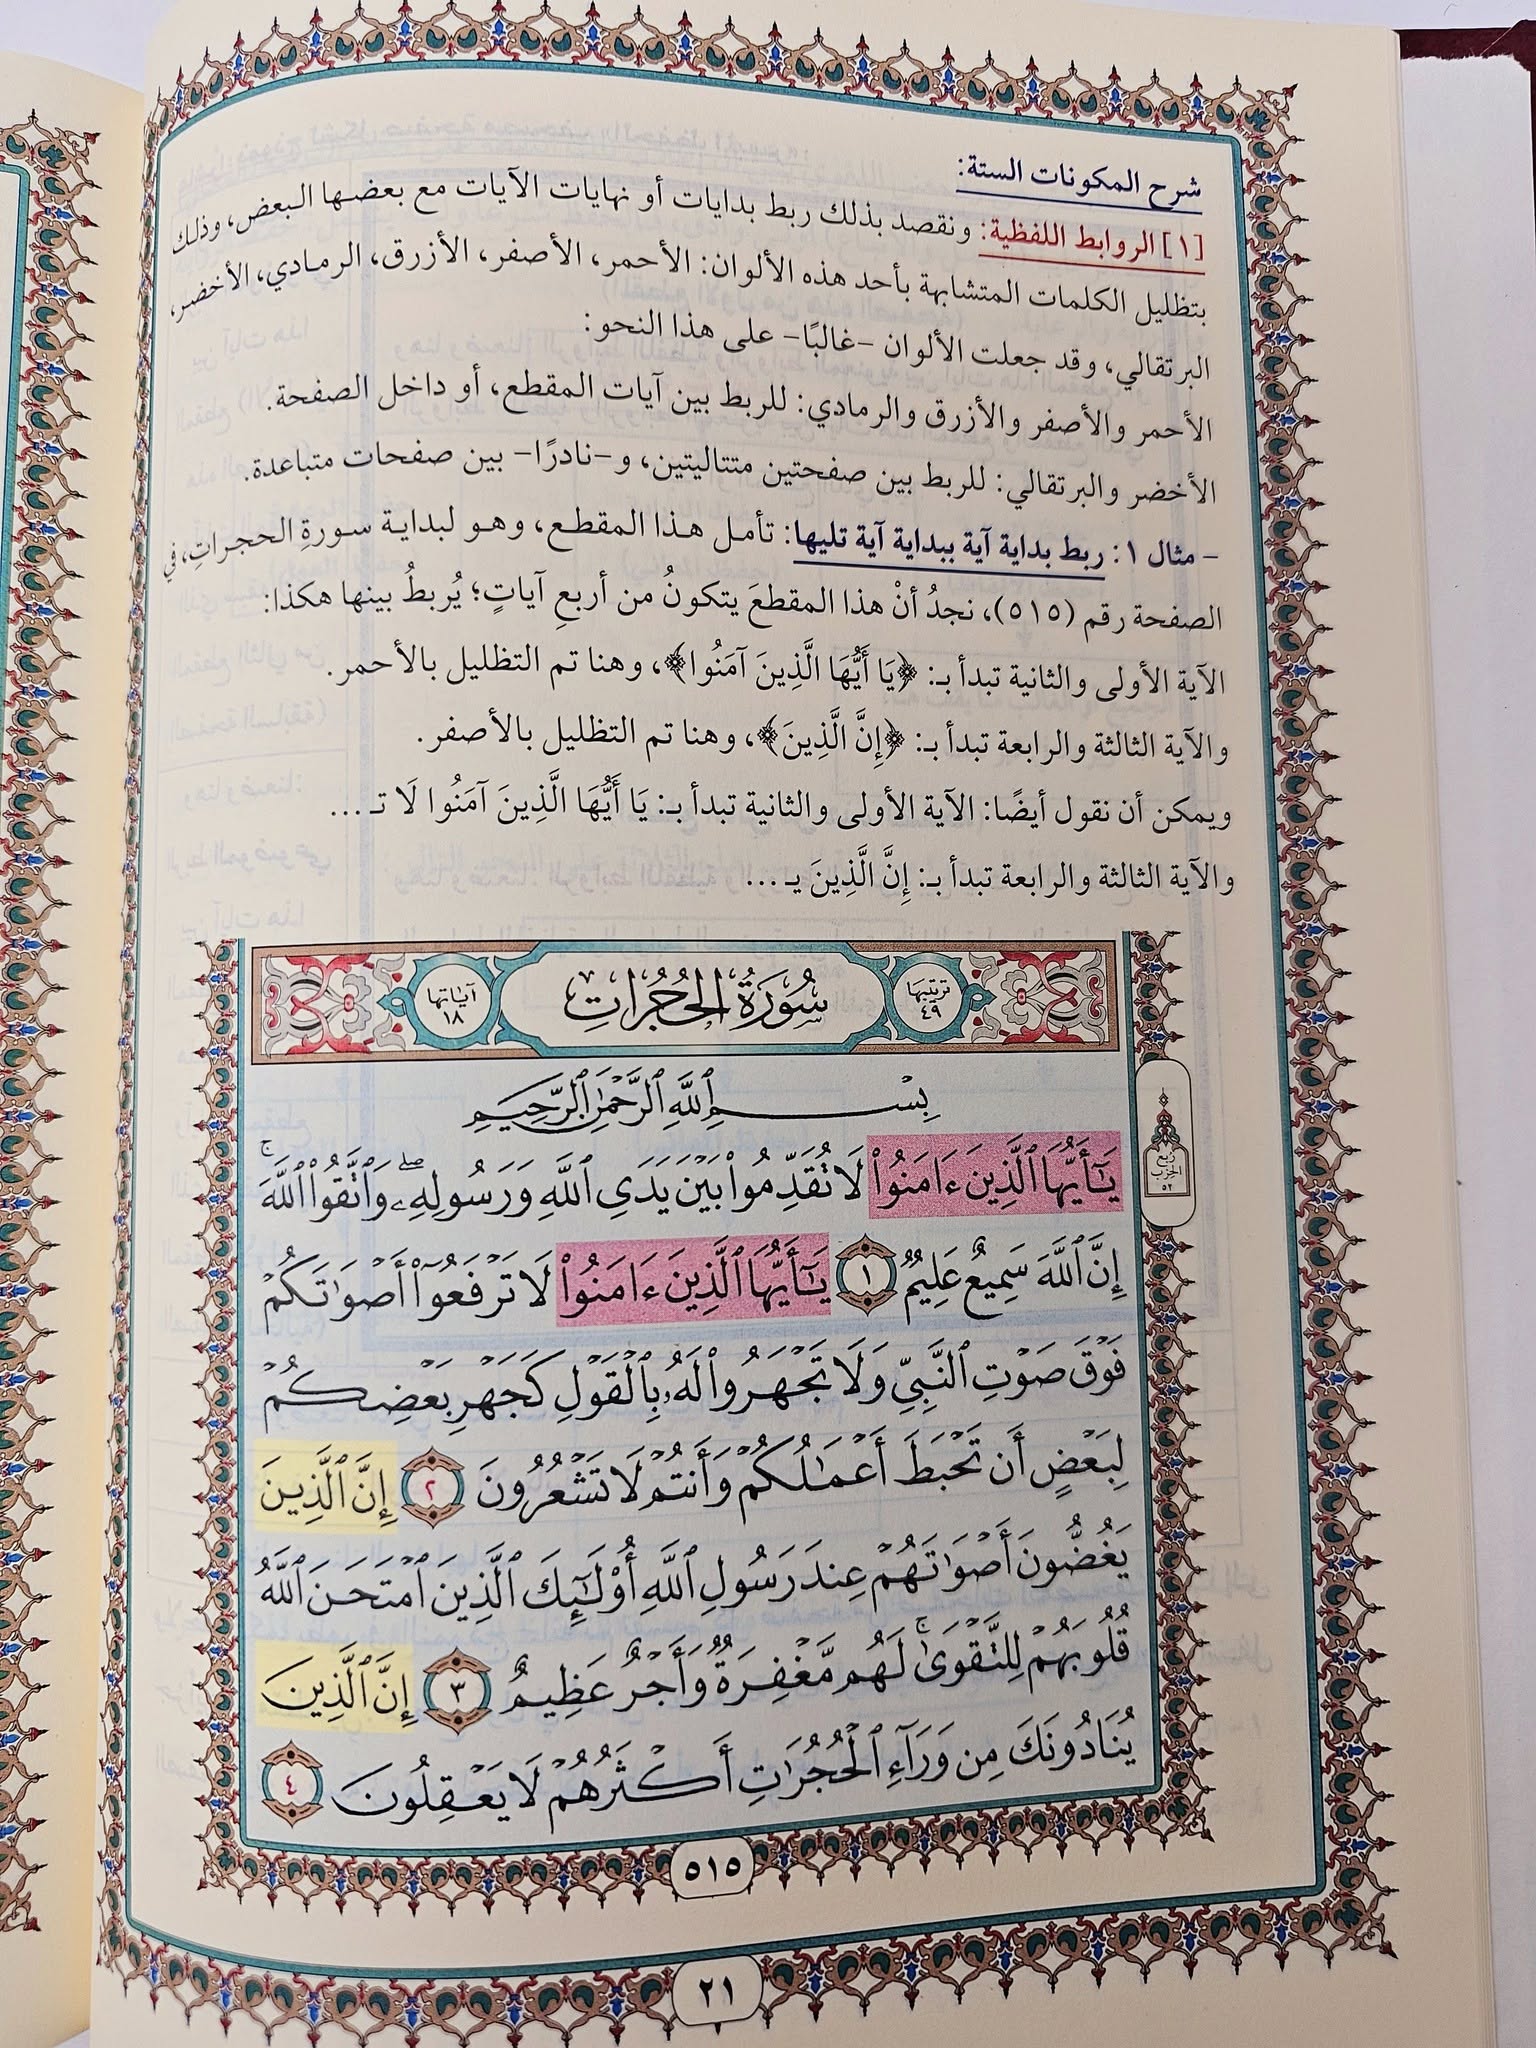 شرح المكونات الستة:
[١] الروابط اللفظية: ونقصد بذلك ربط بدايات أو نهايات الآيات مع بعضها البعض، وذلك
بتظليل الكلمات المتشابهة بأحد هذه الألوان: الأحمر، الأصفر، الأزرق، الرمادي، الأخضر،
البرتقالي، وقد جعلت الألوان -غالبًا- على هذا النحو:
الأحمر والأصفر والأزرق والرمادي: للربط بين آيات المقطع، أو داخل الصفحة.
الأخضر والبرتقالي: للربط بين صفحتين متتاليتين، و-نادرًا- بين صفحات متباعدة.
- مثال ١: ربط بداية آية ببداية آية تليها: تأمل هذا المقطع، وهو لبداية سورةِ الحجراتِ، في
الصفحة رقم (٥١٥)، نجدُ أنْ هذا المقطعَ يتكونُ من أربعِ آياتٍ؛ يُربطُ بينها هكذا:
الآية الأولى والثانية تبدأ بـ: ﴿يَا أَيُّهَا الَّذِينَ آمَنُوا﴾، وهنا تم التظليل بالأحمر.
والآية الثالثة والرابعة تبدأ بـ: ﴿إِنَّ الَّذِينَ﴾، وهنا تم التظليل بالأصفر.
ويمكن أن نقول أيضًا: الآية الأولى والثانية تبدأ بـ: يَا أَيُّهَا الَّذِينَ آمَنُوا لَا تـ ...
والآية الثالثة والرابعة تبدأ بـ: إِنَّ الَّذِينَ يـ ...
ترتيبها ٤٩ سُورَةُ الحُجُرَاتِ آياتها ١٨
بِسْمِ ٱللَّهِ ٱلرَّحْمَٰنِ ٱلرَّحِيمِ
يَٰٓأَيُّهَا ٱلَّذِينَ ءَامَنُوا۟ لَا تُقَدِّمُوا۟ بَيْنَ يَدَىِ ٱللَّهِ وَرَسُولِهِۦۖ وَٱتَّقُوا۟ ٱللَّهَۚ
ربع الحزب ٥٢
إِنَّ ٱللَّهَ سَمِيعٌ عَلِيمٌ ١ يَٰٓأَيُّهَا ٱلَّذِينَ ءَامَنُوا۟ لَا تَرْفَعُوٓا۟ أَصْوَٰتَكُمْ
فَوْقَ صَوْتِ ٱلنَّبِىِّ وَلَا تَجْهَرُوا۟ لَهُۥ بِٱلْقَوْلِ كَجَهْرِ بَعْضِكُمْ
لِبَعْضٍ أَن تَحْبَطَ أَعْمَٰلُكُمْ وَأَنتُمْ لَا تَشْعُرُونَ ٢ إِنَّ ٱلَّذِينَ
يَغُضُّونَ أَصْوَٰتَهُمْ عِندَ رَسُولِ ٱللَّهِ أُو۟لَٰٓئِكَ ٱلَّذِينَ ٱمْتَحَنَ ٱللَّهُ
قُلُوبَهُمْ لِلتَّقْوَىٰۚ لَهُم مَّغْفِرَةٌ وَأَجْرٌ عَظِيمٌ ٣ إِنَّ ٱلَّذِينَ
يُنَادُونَكَ مِن وَرَآءِ ٱلْحُجُرَٰتِ أَكْثَرُهُمْ لَا يَعْقِلُونَ ٤
٥١٥
٢١